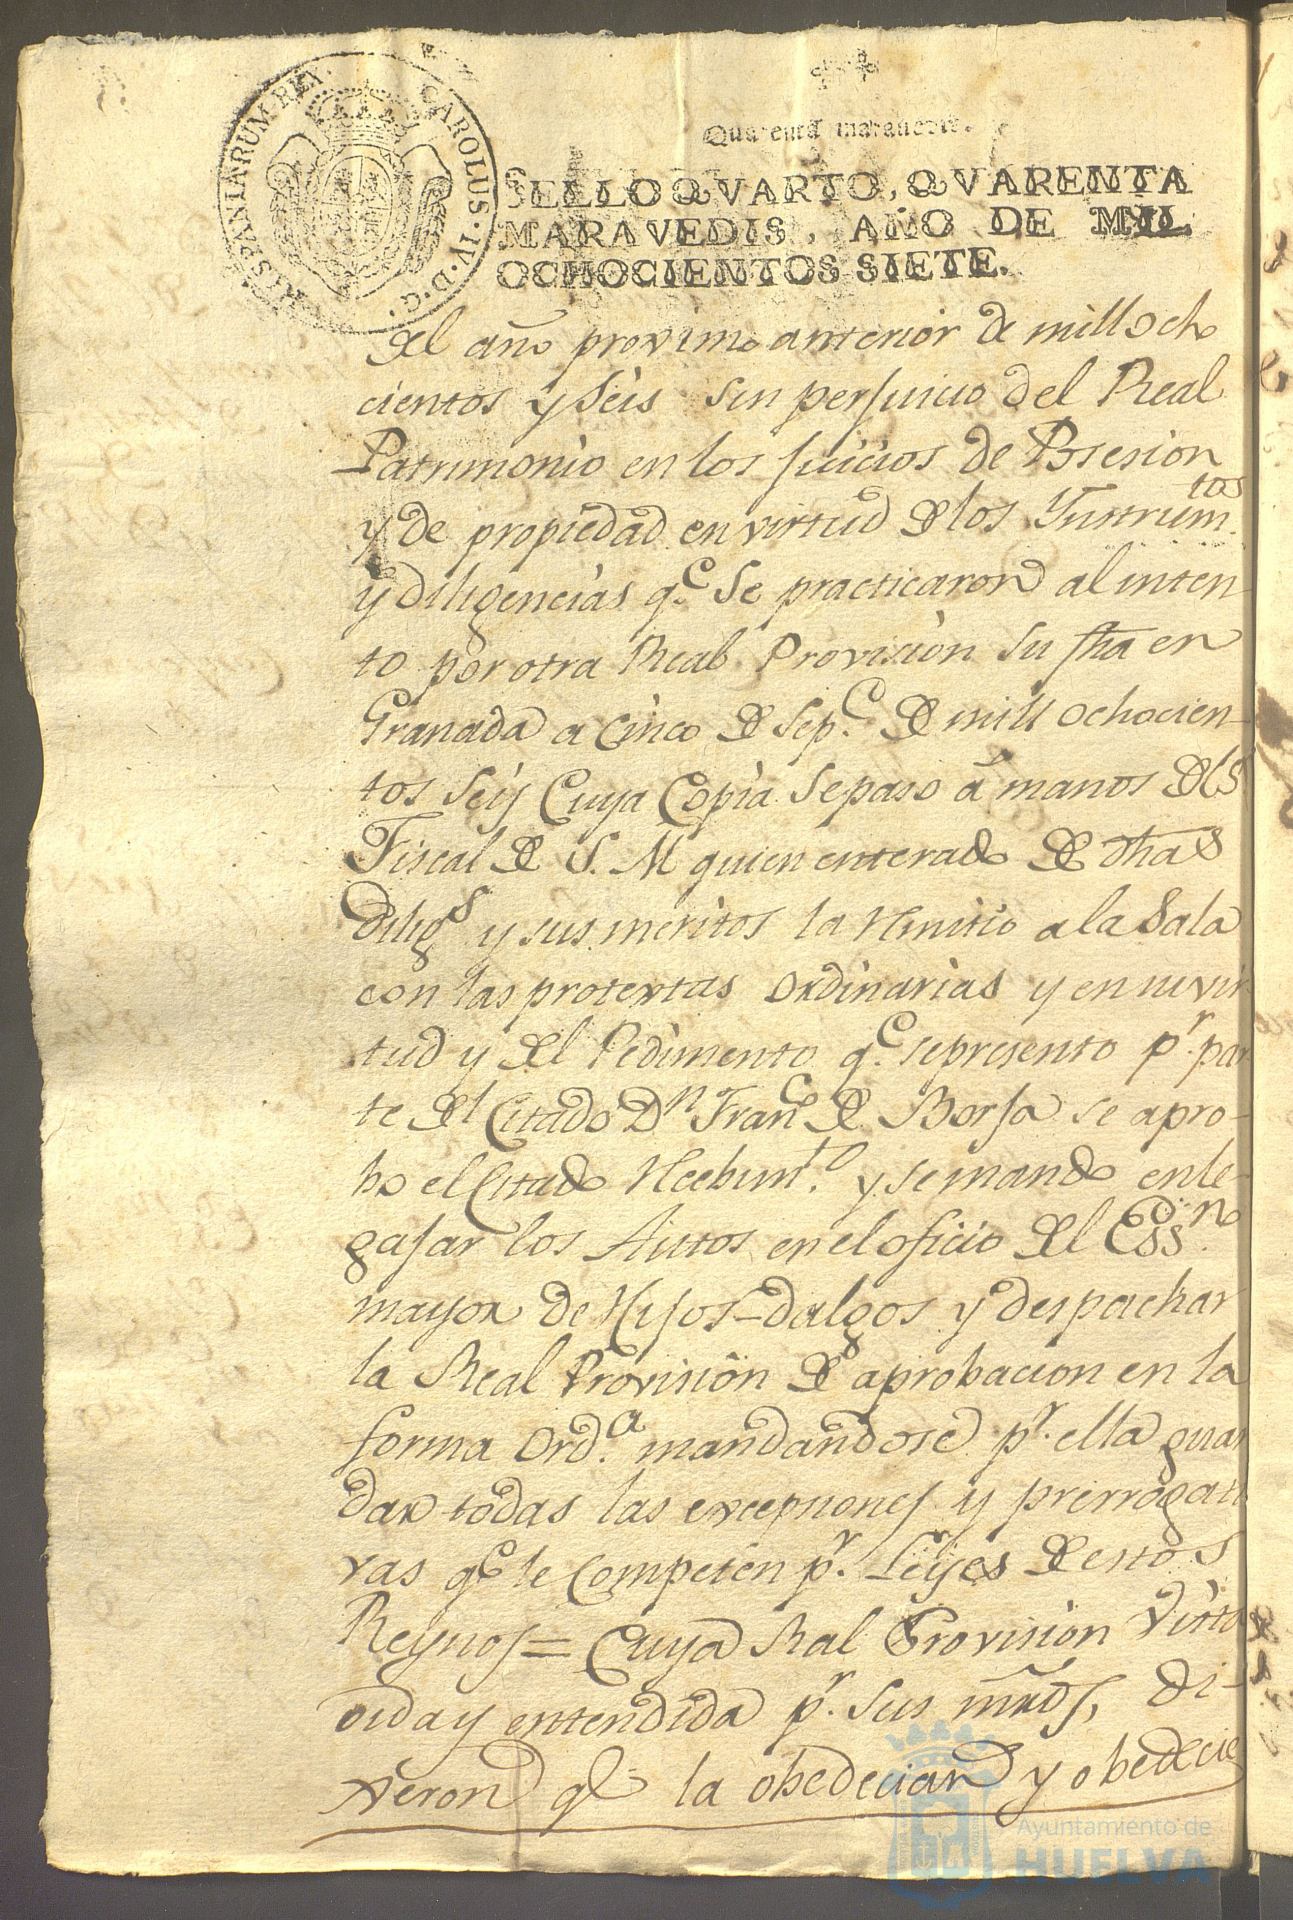 HISPANIARUM REX CAROLUS·IV·D·G·
Quarenta maravedis.
SELLO QVARTO, QVARENTA
MARAVEDIS, AÑO DE MIL
OCHOCIENTOS SIETE.
del año proximo anterior de mill ocho
cientos y seis sin perjuicio del Real
Patrimonio en los juicios de Posesion
y de propiedad en virtud de los Ynstrumtos
y diligencias qe se practicaron al inten
to por otra Real Provision su fha en
Granada a Cinco de Sepe de mill ochocien-
tos seis Cuya Copia se paso á manos del
Fiscal de S. M quien enterado de dhas
Diligs y sus meritos la remitio a la Sala
con las protextas ordinarias y en su vir
tud y del Pedimento qe se presento pr par
te del Citado Dn Franco de Borja se apro-
bo el Citado recibimto y se mando enle-
gajar los Autos en el oficio del Essno
mayor de Hijos-dalgos y despachar
la Real Provision de aprobacion en la
forma Orda mandandose pr ella guar
dar todas las excepciones y prerrogati
vas qe le competen pr Leyes de estos
Reynos = Cuya Real Provision vista
oida y entendida pr sus mrds, di-
xeron qe la obedecian y obedecie
Ayuntamiento de
HUELVA